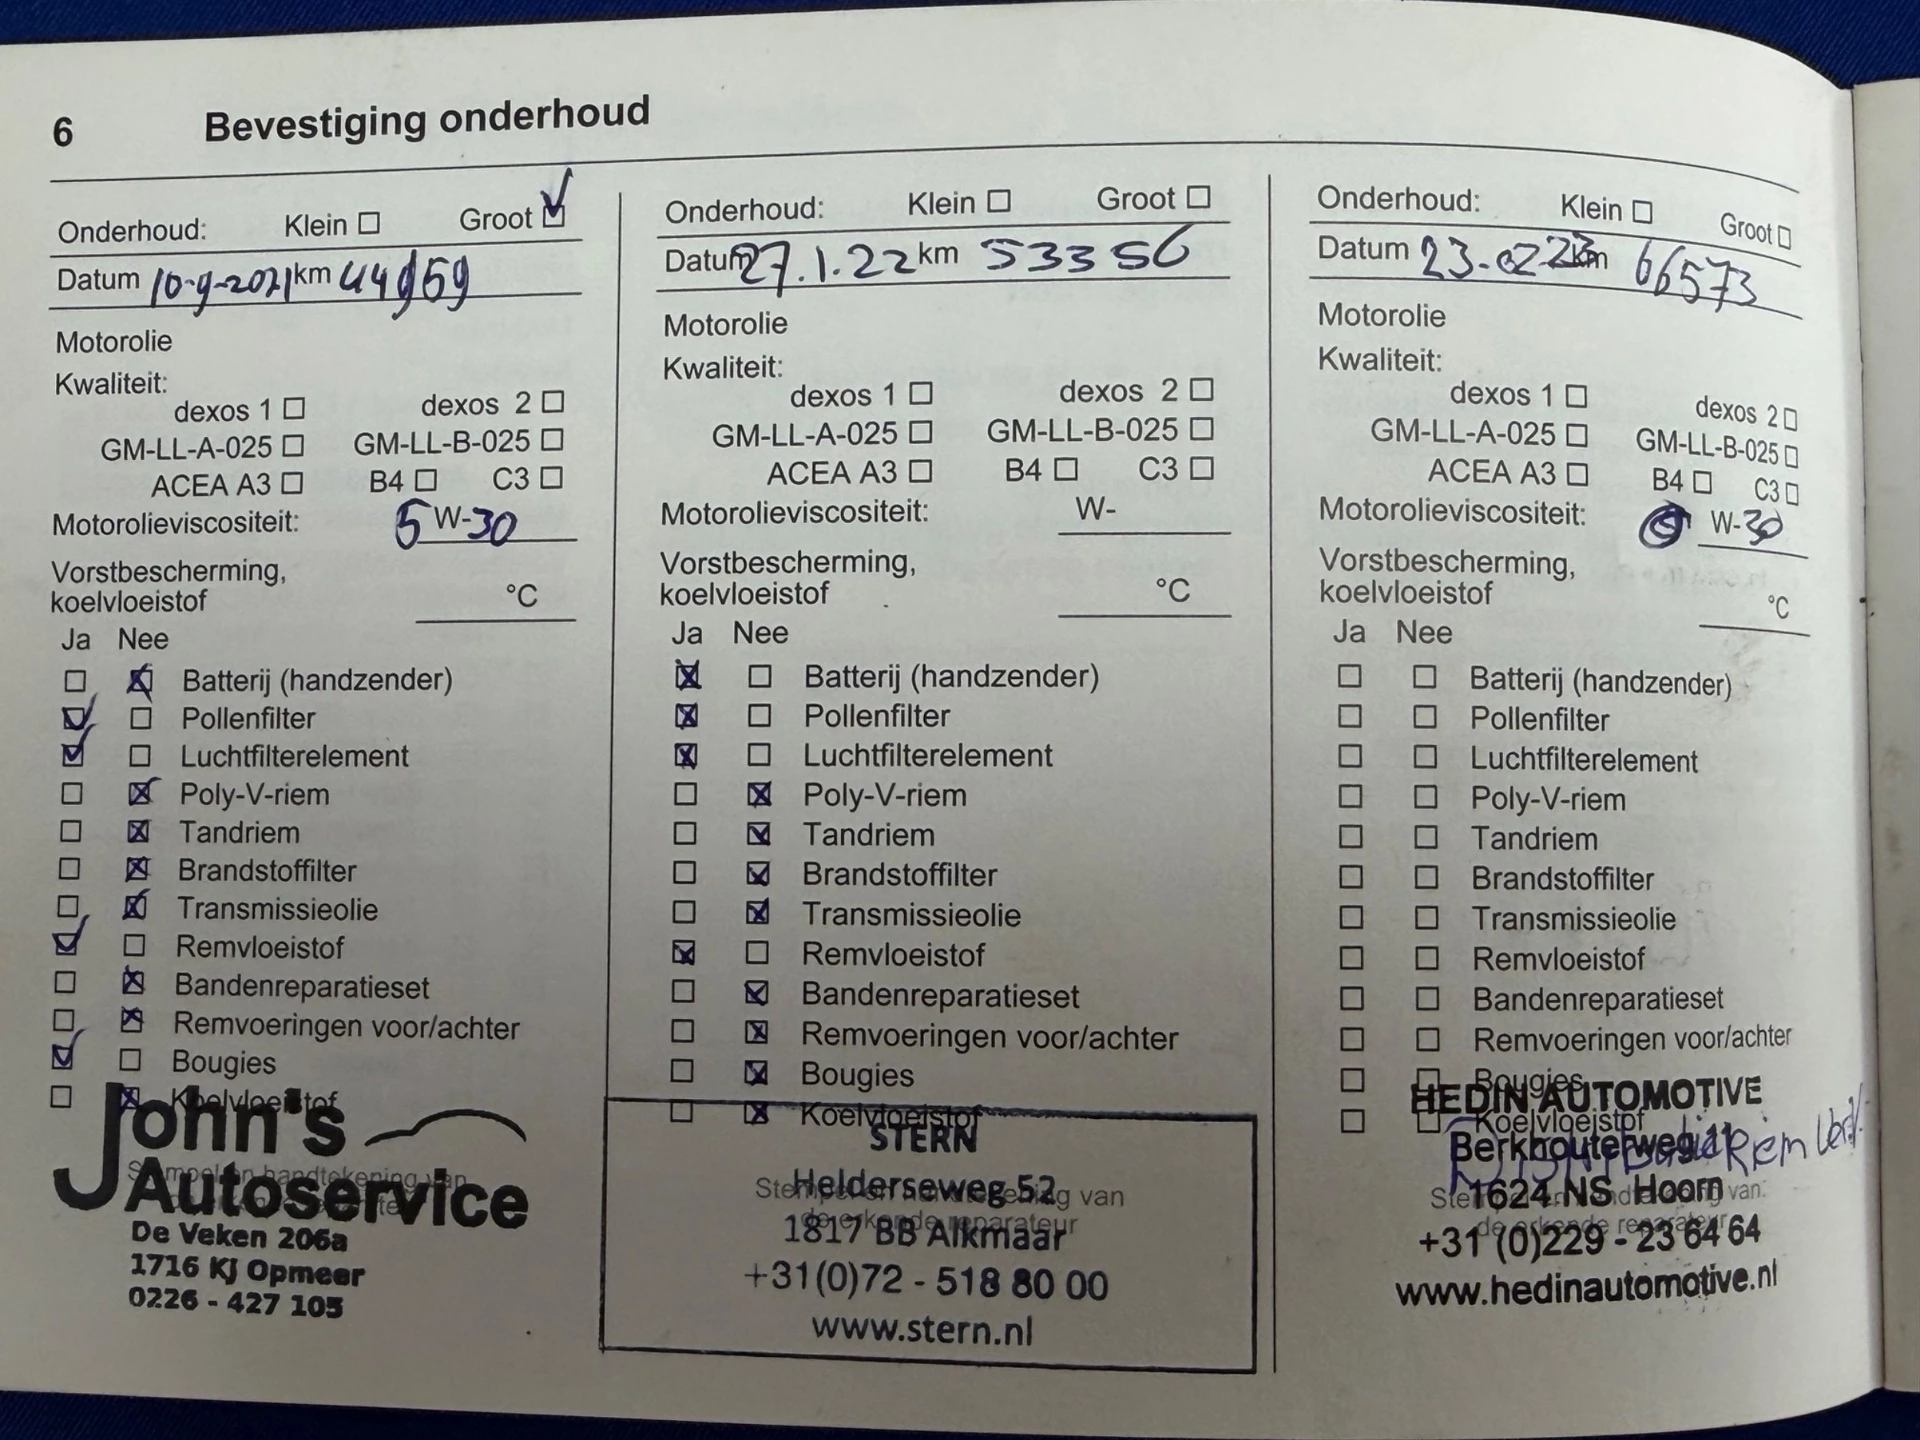 6 Bevestiging onderhoud
Onderhoud: Klein Groot
Datum 10-9-2021 km
Motorolie
Kwaliteit:
dexos 1 dexos 2
GM-LL-A-025 GM-LL-B-025
ACEA A3 B4 C3
Motorolieviscositeit: 5 W-30
Vorstbescherming,
koelvloeistof °C
Ja Nee
Batterij (handzender)
Pollenfilter
Luchtfilterelement
Poly-V-riem
Tandriem
Brandstoffilter
Transmissieolie
Remvloeistof
Bandenreparatieset
Remvoeringen voor/achter
Bougies
Koelvloeistof
John's
Stempel en handtekening van
Autoservice
De Veken 206a
1716 KJ Opmeer
0226 - 427 105
Onderhoud: Klein Groot
Datum 27.1.22 km 53356
Motorolie
Kwaliteit:
dexos 1 dexos 2
GM-LL-A-025 GM-LL-B-025
ACEA A3 B4 C3
Motorolieviscositeit: W-
Vorstbescherming,
koelvloeistof °C
Ja Nee
Batterij (handzender)
Pollenfilter
Luchtfilterelement
Poly-V-riem
Tandriem
Brandstoffilter
Transmissieolie
Remvloeistof
Bandenreparatieset
Remvoeringen voor/achter
Bougies
Koelvloeistof
STERN
Helderseweg 52
Stempel en handtekening van
de erkende reparateur
1817 BB Alkmaar
+31(0)72 - 518 80 00
www.stern.nl
Onderhoud: Klein Groot
Datum 23-02-23 km 66573
Motorolie
Kwaliteit:
dexos 1 dexos 2
GM-LL-A-025 GM-LL-B-025
ACEA A3 B4 C3
Motorolieviscositeit: W-30
Vorstbescherming,
koelvloeistof °C
Ja Nee
Batterij (handzender)
Pollenfilter
Luchtfilterelement
Poly-V-riem
Tandriem
Brandstoffilter
Transmissieolie
Remvloeistof
Bandenreparatieset
Remvoeringen voor/achter
Bougies
HEDIN AUTOMOTIVE
Koelvloeistof
Berkhouterweg 11
Riem
1624 NS Hoorn
Stempel en handtekening van:
de erkende reparateur
+31 (0)229 - 23 64 64
www.hedinautomotive.nl